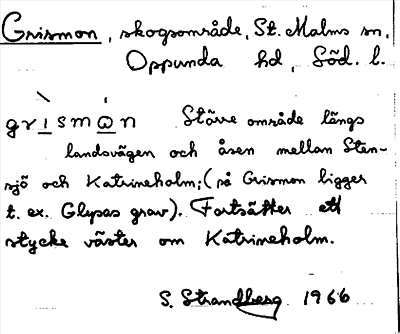 Grismon, skogsområde, St. Malms sn,
Oppunda hd, Söd. l.
grismωn Större område längs
landsvägen och åsen mellan Sten-
sjö och Katrineholm; (på Grismon ligger
t. ex. Glypas grav). Fortsätter ett
stycke väster om Katrineholm.
S. Strandberg 1966